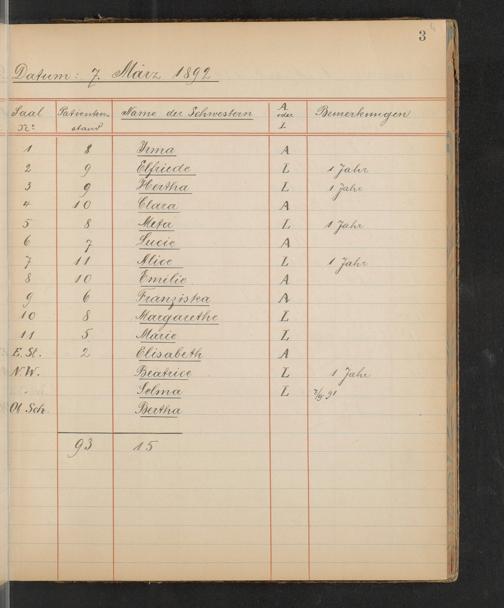 3
Datum: 7. März 1892
Saal No. Patientenstand Name der Schwestern A oder L Bemerkungen
1 8 Irma A
2 9 Elfriede L 1 Jahr
3 9 Hertha L 1 Jahr
4 10 Clara A
5 8 Meta L 1 Jahr
6 7 Lucie A
7 11 Alice L 1 Jahr
8 10 Emilie A
9 6 Franziska A
10 8 Margarethe L
11 5 Marie L
E. St. 2 Elisabeth A
N.W. Beatrice L 1 Jahr
Selma L 91
Ob Sch. Bertha
93 15